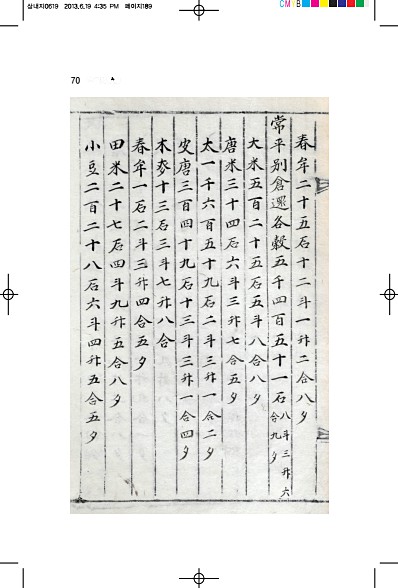 삼내지0619 2013.6.19 4:35 PM 페이지189
CMYB
70
春牟二十五石十二斗一升二合八夕
常平別倉還各穀五千四百五十一石八斗三升六合九夕
大米五百二十五石五斗八合八夕
唐米三十四石六斗三升七合五夕
太一千六百五十九石二斗三升一合二夕
皮唐三百四十九石十三斗三升一合四夕
木麥十三石三斗七升八合
春牟一石二斗三升四合五夕
田米二十七石四斗九升五合八夕
小豆二百二十八石六斗四升五合五夕